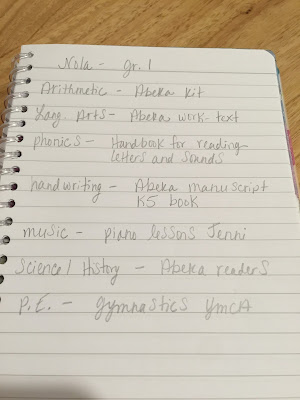 Nola - gr. 1
Arithmetic - Abeka Kit
Lang. Arts - Abeka work-text
phonics - Handbook for reading
Letters and Sounds
handwriting - Abeka manuscript
K5 book
music - piano lessons Jenni
Science/History - Abeka readers
P.E. - gymnastics YMCA